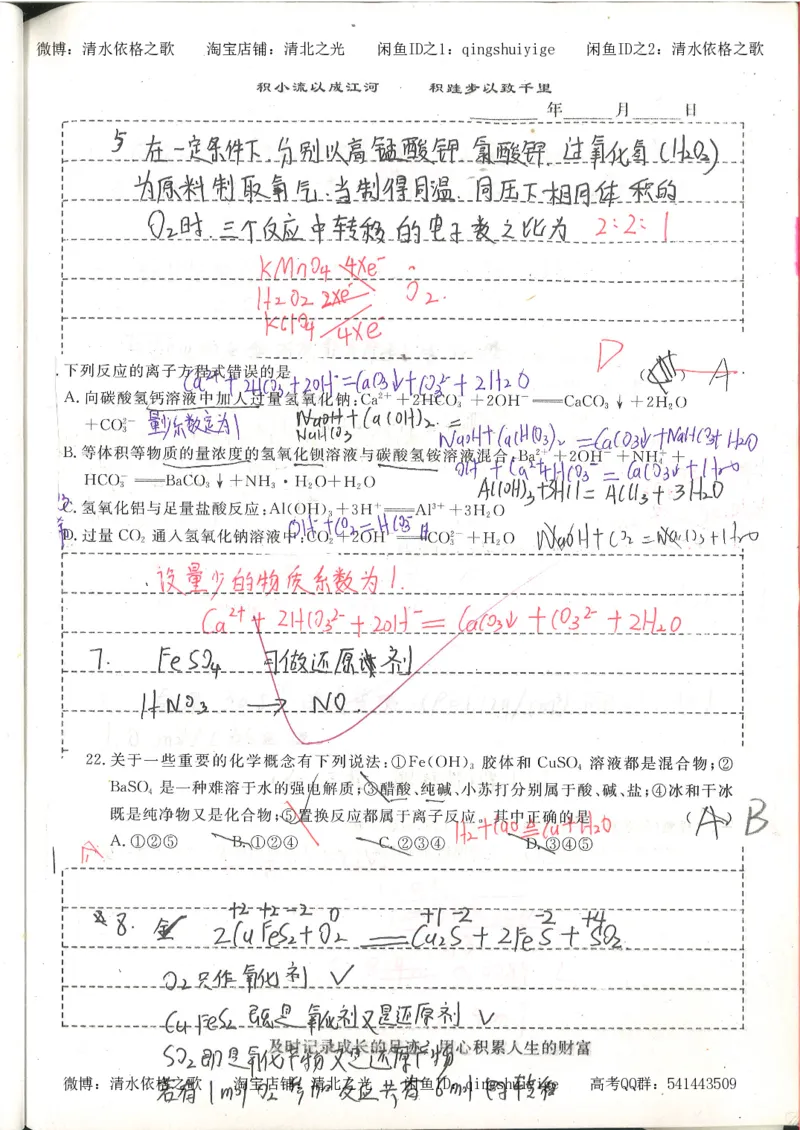 微博：清水依格之歌 淘宝店铺：清北之光 闲鱼ID之1：qingshuiyige 闲鱼ID之2：清水依格之歌
积小流以成江河 积跬步以致千里
年 月 日
5 在一定条件下,分别以高锰酸钾 氯酸钾.过氧化氢(H₂O₂)
为原料制取氧气.当制得同温.同压下相同体积的
O₂时.三个反应中转移的电子数之比为 2:2:1
KMnO₄ 4xe⁻
H₂O₂ 2xe⁻ O₂.
KClO₄ 4xe⁻
D
下列反应的离子方程式错误的是 ( ) A
Ca²⁺+2HCO₃⁻+2OH⁻=CaCO₃↓+CO₃²⁻+2H₂O
A. 向碳酸氢钙溶液中加入过量氢氧化钠:Ca²⁺+2HCO₃⁻+2OH⁻══CaCO₃↓+2H₂O
+CO₃²⁻ 量少系数定为1 NaOH+Ca(OH)₂.=
NaHCO₃
NaOH+Ca(HCO₃)₂=CaCO₃↓+NaHCO₃+H₂O
B. 等体积等物质的量浓度的氢氧化钡溶液与碳酸氢铵溶液混合:Ba²⁺+2OH⁻+NH₄⁺+
OH⁻+Ca²⁺+HCO₃⁻=CaCO₃↓+H₂O
HCO₃⁻══BaCO₃↓+NH₃·H₂O+H₂O
Al(OH)₃+3HCl=AlCl₃+3H₂O
C. 氢氧化铝与足量盐酸反应:Al(OH)₃+3H⁺══Al³⁺+3H₂O
OH⁻+CO₂=HCO₃⁻
D. 过量CO₂通入氢氧化钠溶液中:CO₂+2OH⁻══CO₃²⁻+H₂O NaOH+CO₂=NaCO₃+H₂O
设量少的物质系数为1.
Ca²⁺+2HCO₃²⁻+2OH⁻=CaCO₃↓+CO₃²⁻+2H₂O
7. FeSO₄ 只做还原剂
HNO₃ → NO
22. 关于一些重要的化学概念有下列说法:①Fe(OH)₃胶体和CuSO₄溶液都是混合物;②
BaSO₄是一种难溶于水的强电解质;③醋酸、纯碱、小苏打分别属于酸、碱、盐;④冰和干冰
既是纯净物又是化合物;⑤置换反应都属于离子反应。其中正确的是 (A) B
H₂+CuO=Cu+H₂O
A. ①②⑤ B. ①②④ C. ②③④ D. ③④⑤
A
+2 +2 -2 0 +1 -2 -2 +4
8. 2CuFeS₂+O₂══Cu₂S+2FeS+SO₂
O₂只作氧化剂 √
CuFeS₂既是氧化剂又是还原剂 √
及时记录成长的足迹,用心积累人生的财富
SO₂即是氧化产物又是还原产物
微博：清水依格之歌 淘宝店铺：清北之光 闲鱼ID：qingshuiyige 高考QQ群：541443509
若有1mol O₂参加反应共有6mol电子转移